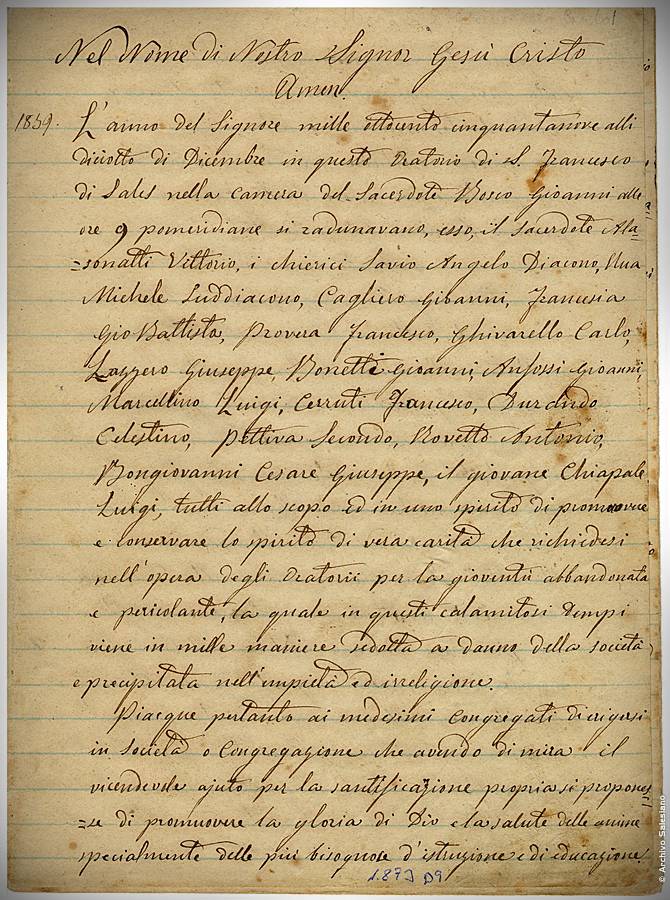 Nel Nome di Nostro Signor Gesù Cristo
Amen.
1859. L'anno del Signore mille ottocento cinquantanove alli
diciotto di Dicembre in questo Oratorio di S. Francesco
di Sales nella camera del Sacerdote Bosco Gioanni alle
ore 9 pomeridiane si radunavano, esso, il Sacerdote Ala=
=sonatti Vittorio, i chierici Savio Angelo Diacono, Rua
Michele Suddiacono, Cagliero Gioanni, Francesia
Gio Battista, Provera Francesco, Ghivarello Carlo,
Lazzero Giuseppe, Bonetti Gioanni, Anfossi Gioanni,
Marcellino Luigi, Cerruti Francesco, Durando
Celestino, Pettiva Secondo, Rovetto Antonio,
Bongiovanni Cesare Giuseppe, il giovane Chiapale
Luigi, tutti allo scopo ed in uno spirito di promuovere
e conservare lo spirito di vera carità che richiedesi
nell'opera degli Oratorii per la gioventù abbandonata
e pericolante, la quale in questi calamitosi tempi
viene in mille maniere sedotta a danno della società
e precipitata nell'empietà ed irreligione.
Piacque pertanto ai medesimi Congregati di erigersi
in Società o Congregazione che avendo di mira il
vicendevole ajuto per la santificazione propria si propones
=se di promuovere la gloria di Dio e la salute delle anime
specialmente delle più bisognose d'istruzione e di educazione
1873 D9
© Archivo Salesiano